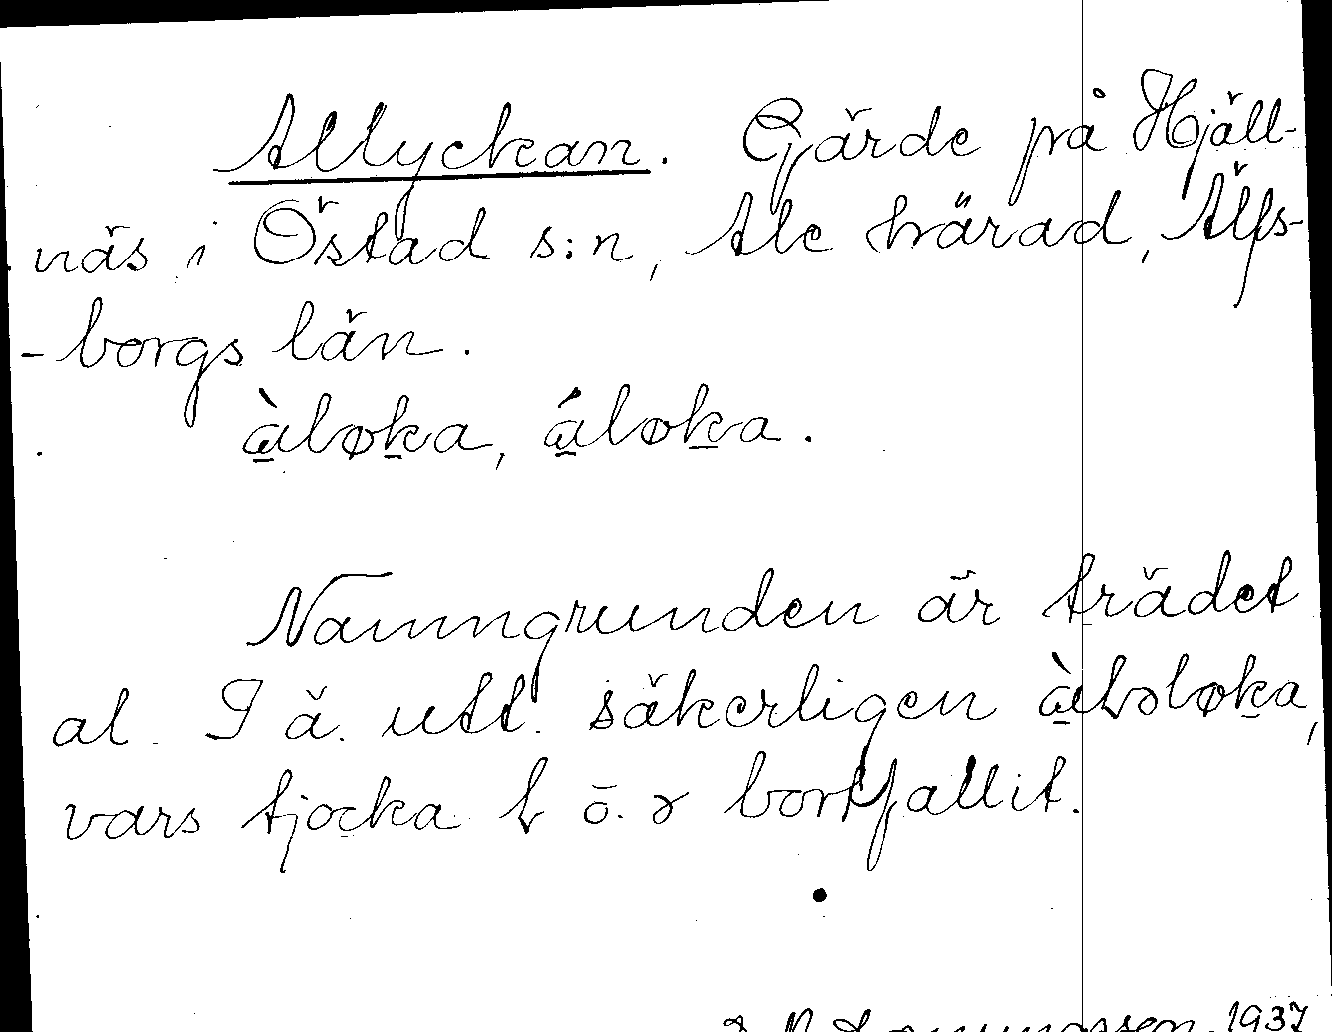 Allyckan. Gärde på Hjäll-
näs i Östad s:n, Ale härad, Älfs-
-borgs län.
à̱løḵa, á̱løḵa.
Namngrunden är trädet
al. I ä. utt. säkerligen à̱ɫɔløḵa,
vars tjocka ɫ o. ɔ bortfallit.
1937